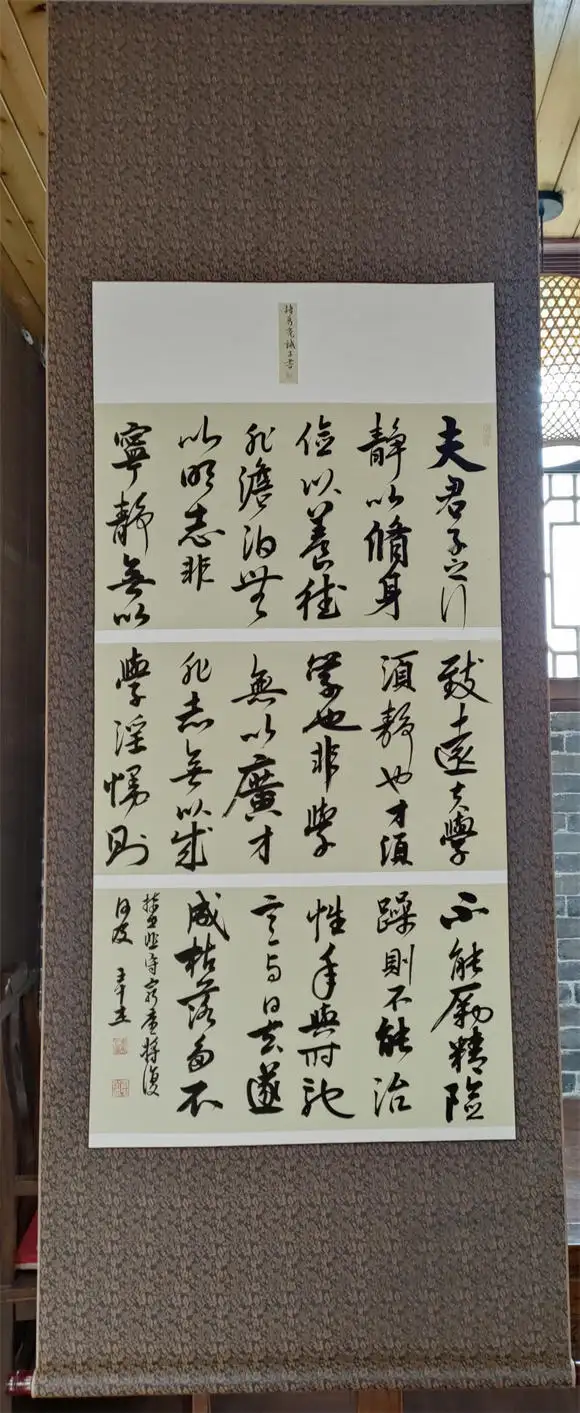 諸葛亮誡子書
夫君子之行
静以脩身
俭以養德
非澹泊無
以明志非
寧静無以
致遠夫學
須静也才須
學也非學
無以廣才
非志無以成
學淫慢則
不能励精險
躁則不能治
性年與时馳
意与日去遂
成枯落多不
接世悲守窮廬將復
何及